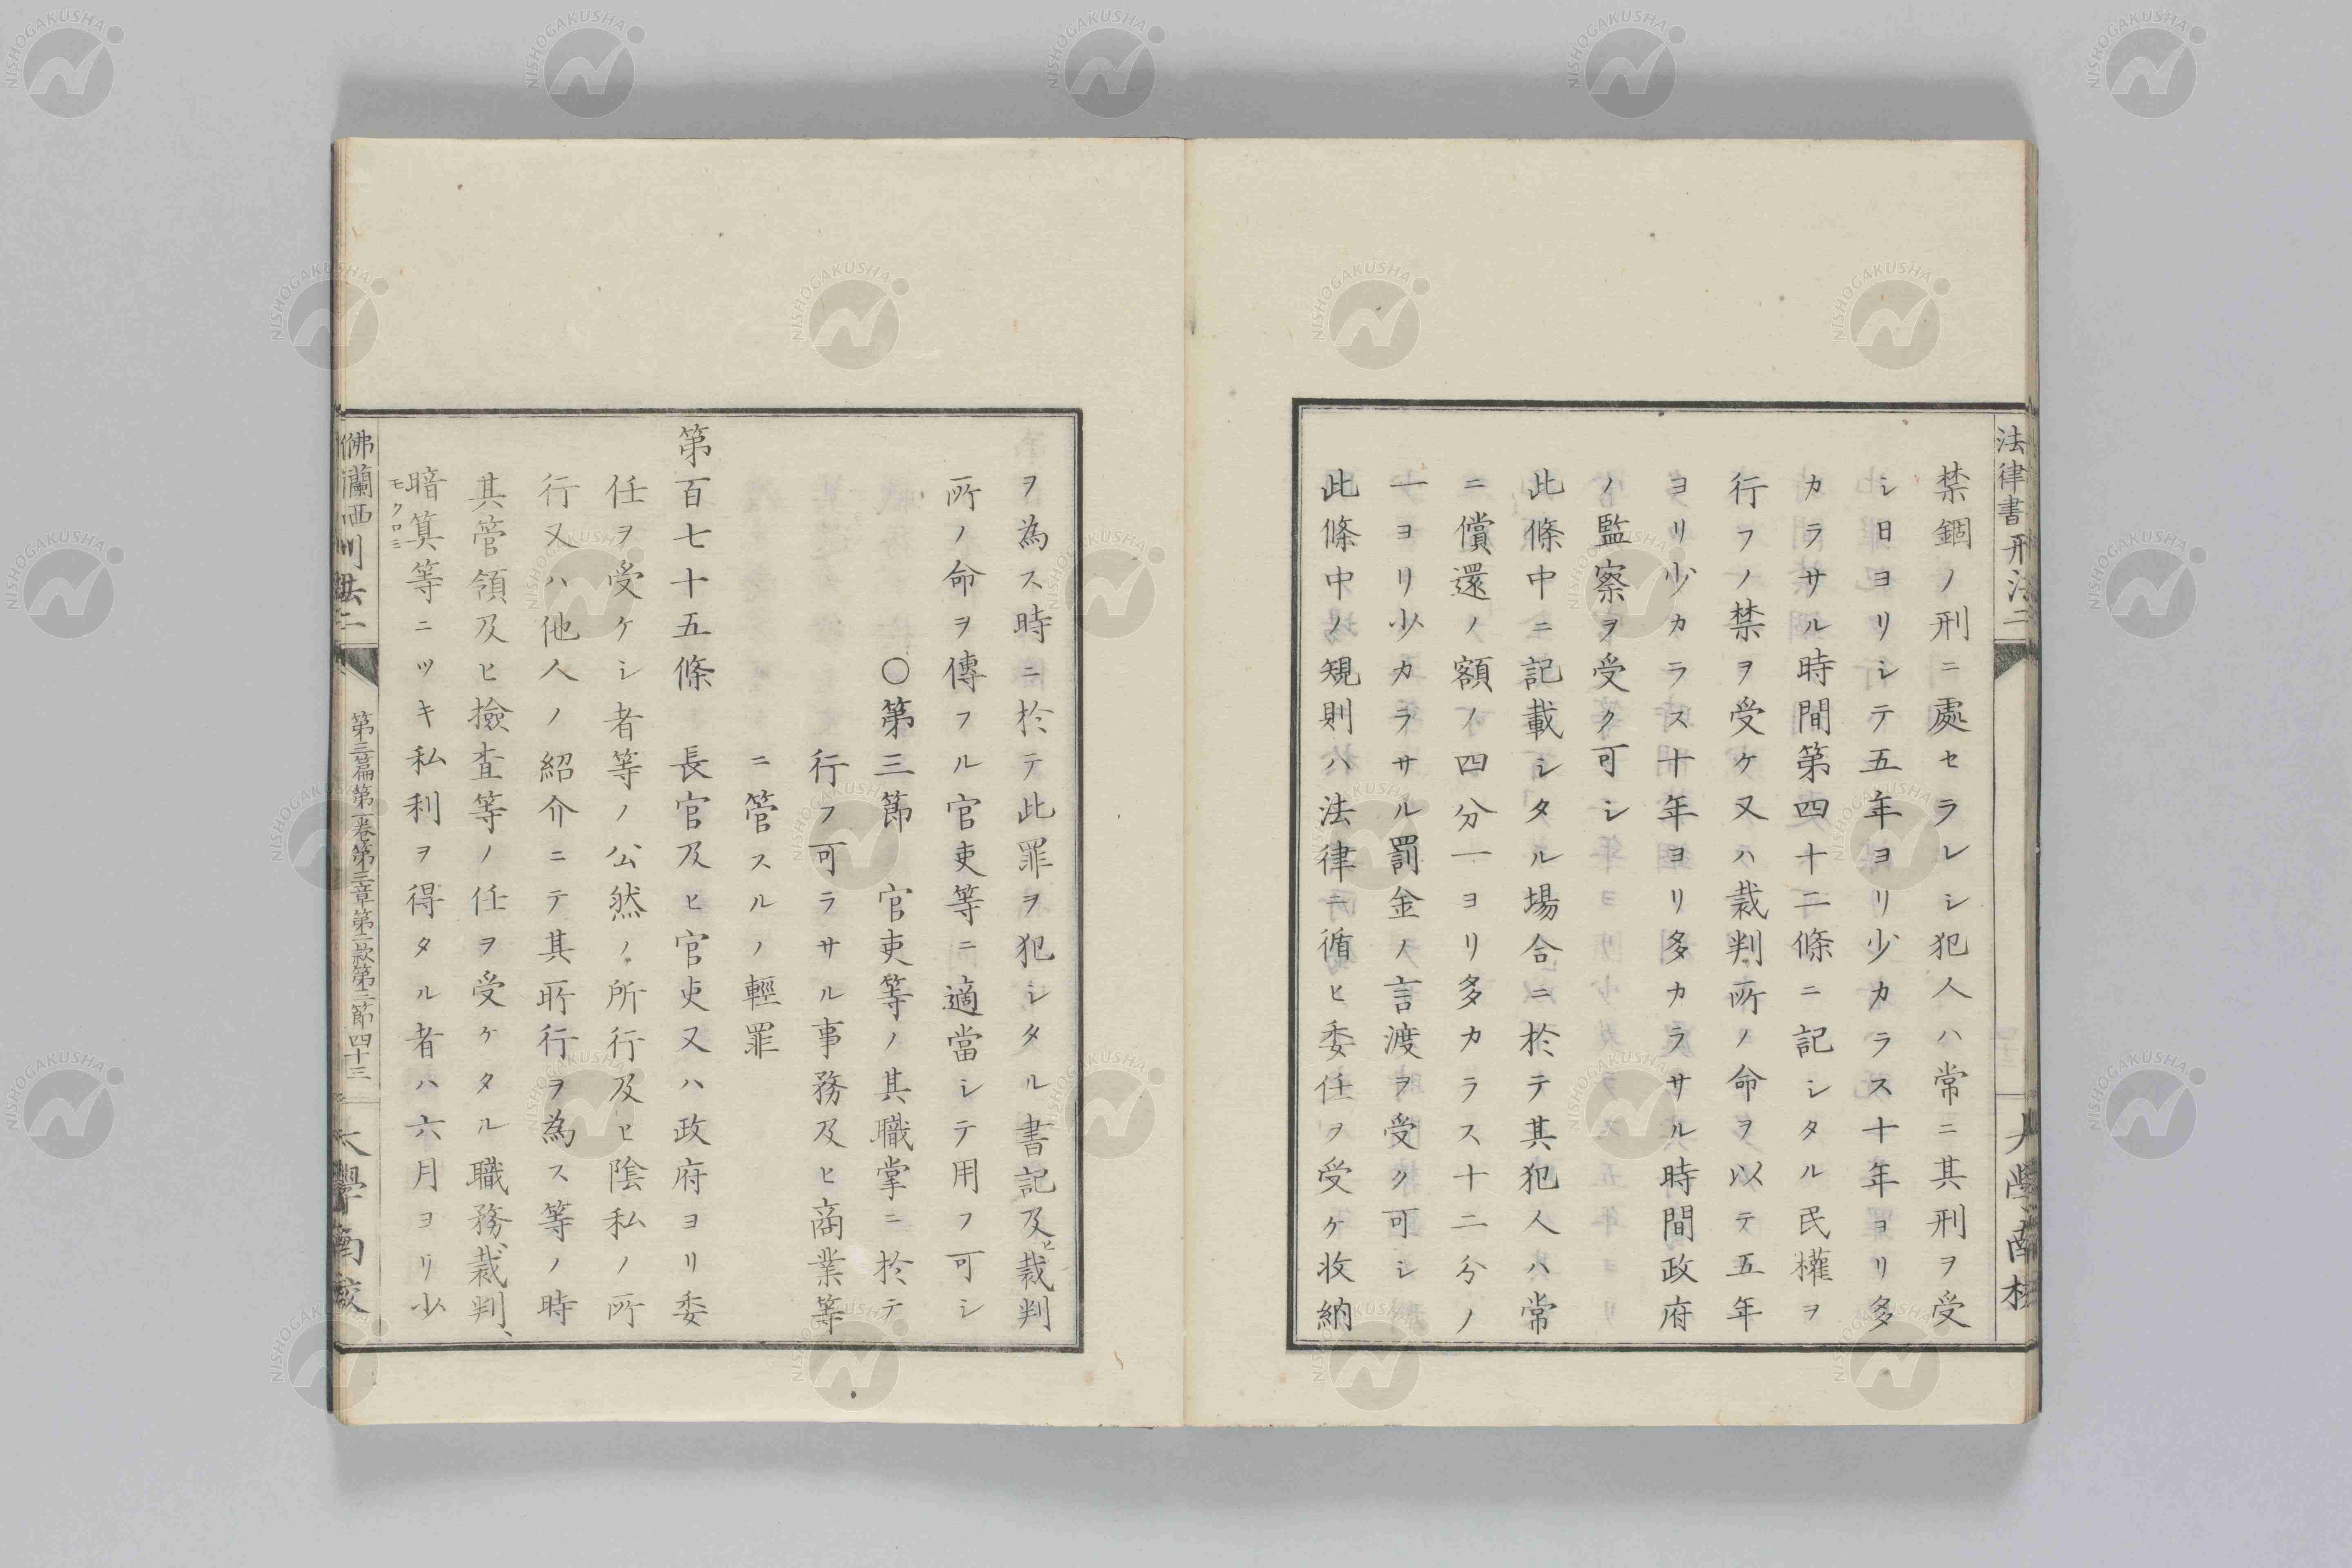 法律書刑法二
禁錮ノ刑ニ處セラレシ犯人ハ常ニ其刑ヲ受
シ日ヨリシテ五年ヨリ少カラス十年ヨリ多
カラサル時間第四十二條ニ記シタル民權ヲ
行フノ禁ヲ受ケ又ハ裁判所ノ命ヲ以テ五年
ヨリ少カラス十年ヨリ多カラサル時間政府
ノ監察ヲ受ク可シ
此條中ニ記載シタル場合ニ於テ其犯人ハ常
ニ償還ノ額ノ四分一ヨリ多カラス十二分ノ
一ヨリ少カラサル罰金ノ言渡ヲ受ク可シ
此條中ノ規則ハ法律ニ循ヒ委任ヲ受ケ收納
ヲ為ス時ニ於テ此罪ヲ犯シタル書記及ヒ裁判
所ノ命ヲ傳フル官吏等ニ適當シテ用フ可シ
〇第三節 官吏等ノ其職掌ニ於テ
行フ可ラサル事務及ヒ商業等
ニ管スルノ輕罪
第百七十五條 長官及ヒ官吏又ハ政府ヨリ委
任ヲ受ケシ者等ノ公然ノ所行及ヒ陰私ノ所
行又ハ他人ノ紹介ニテ其所行ヲ為ス等ノ時
其管領及ヒ撿査等ノ任ヲ受ケタル職務、裁判、
暗算等ニツキ私利ヲ得タル者ハ六月ヨリ少
モクロミ
佛蘭西刑法二
第三篇第一卷第三章第二款第三節 四十三
大學南校
NISHOGAKUSHA